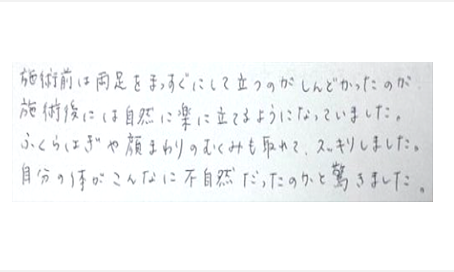 施術前は両足をまっすぐにして立つのがしんどかったのが
施術後には自然に楽に立てるようになっていました。
ふくらはぎや顔まわりのむくみも取れて、スッキリしました。
自分の体がこんなに不自然だったのかと驚きました。